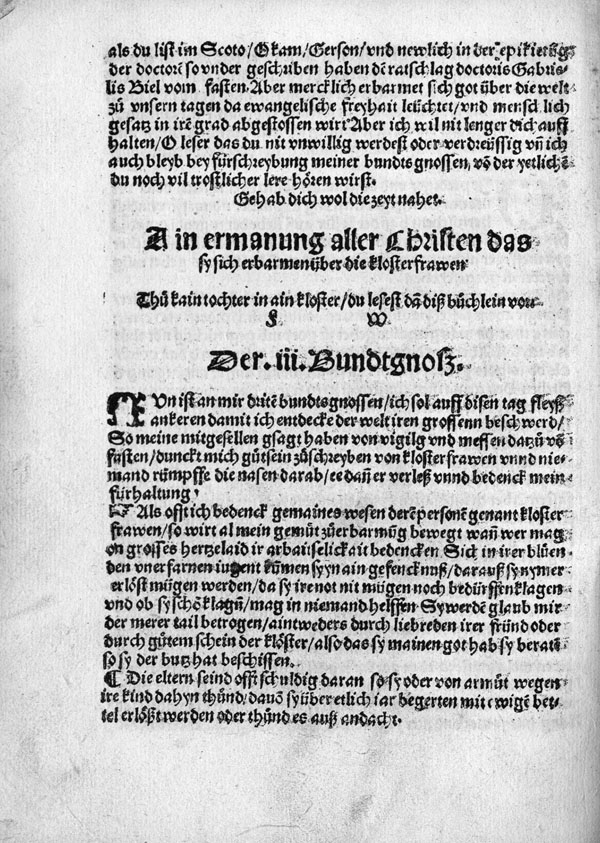 als du list im Scoto/Okam/Gerson/vnd newlich in der epikietzig
der doctorē so vnder geschriben haben dē ratschlag doctoris Gabrie-
lis Biel vom fasten. Aber mercklich erbarmet sich got über die welt
zů vnsern tagen da ewangelische freyhait leüchtet/vnd mensch lich
gesatz in irē grad abgestossen wirt Aber ich wil nit lenger dich auff
halten/O leser das du nit vnwillig werdest oder verdreüssig vñ ich
auch bleyb bey fürschreybung meiner bundtsgnossen/vō der yetlichē
du noch vil trostlicher lere hören wirst.
Gehab dich wol die zeyt nahet.
Ain ermanung aller Christen das
sy sich erbarmen über die klosterfrawen
Thů kain tochter in ain kloster/du lesest dā diß büchlein vor
Der. iii. Bundtgnosz.
NVn ist an mir driten bundtsgnossen/ich sol auff disen tag fleyß
ankeren damit ich entdecke der welt iren grossenn beschwerd/
So meine mitgesellen gsagt haben von vigilg vnd messen datzů vō
fasten/dunckt mich gůt sein zůschreyben von klosterfrawen vnnd nie-
mand rümpffe die nasen darab/es dañ er verleß vnnd bedenck mein
fürhaltung.
Als offt ich bedenck gemaines wesen derē personē genant kloster
frawen/so wirt al mein gemüt zůerbarmūg bewegt wañ wer mag
on grosses hertzelaid ir arbaitselickait bedencken Sich in irer blüen-
den vnerfarnen iugent kūmen sy in ain gefencknuß/darauß sy nymer
erlöst mügen werden/da sy ire not nit mügen noch bedürffen klagen
vnd ob sy schō klagñ/mag in niemand helffen Sy werdē glaub mir
der merer tail betrogen/aintweders durch liebreden irer fründ oder
durch gůtem schein der klöster/also das sy mainen got hab sy beratē
so sy der butz hat beschissen.
¶ Die eltern seind offt schuldig daran so sy oder von armůt wegen
ire kind dahyn thůnd/dauō sy über etlich iar begerten mit ewigē bet-
tel erlößt werden oder thůnd es auß andacht.